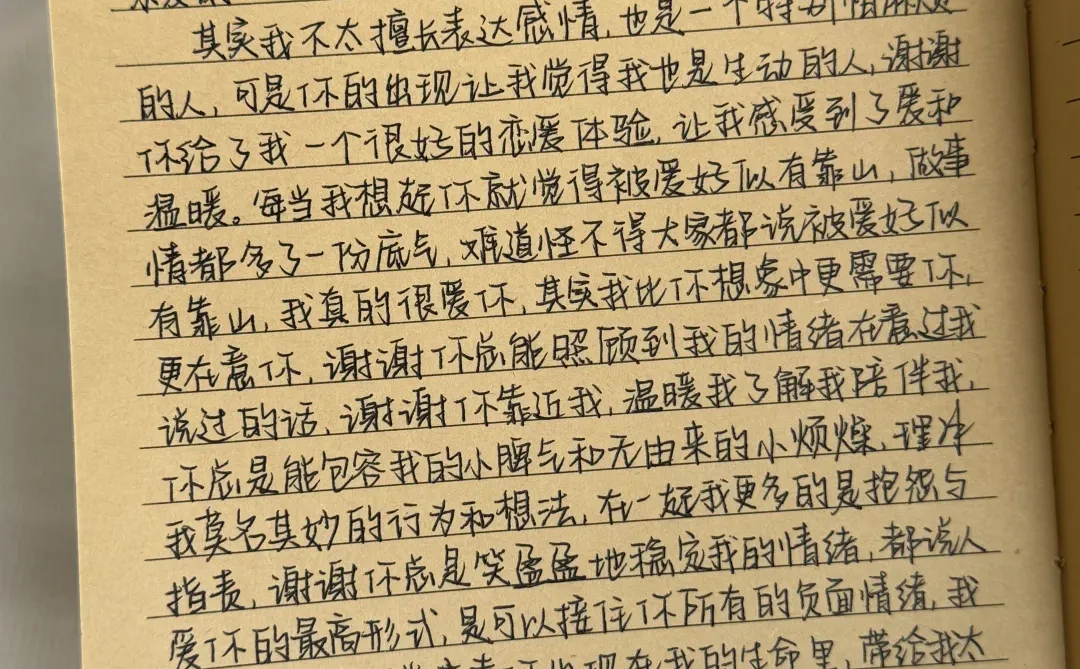 其实我不太擅长表达感情，也是一个特别怕麻烦
的人，可是你的出现让我觉得我也是生动的人，谢谢
你给了我一个很好的恋爱体验，让我感受到了爱和
温暖。每当我想起你就觉得被爱好似有靠山，做事
情都多了一份底气，难道怪不得大家都说被爱好似
有靠山，我真的很爱你，其实我比你想象中更需要你，
更在意你，谢谢你总能照顾到我的情绪在意过我
说过的话，谢谢你靠近我，温暖我了解我陪伴我，
你总是能包容我的小脾气和无由来的小烦燥，理解
我莫名其妙的行为和想法，在一起我更多的是抱怨与
指责，谢谢你总是笑盈盈地稳定我的情绪，都说人
爱你的最高形式，是可以接住你所有的负面情绪，我
你出现在我的生命里，带给我太